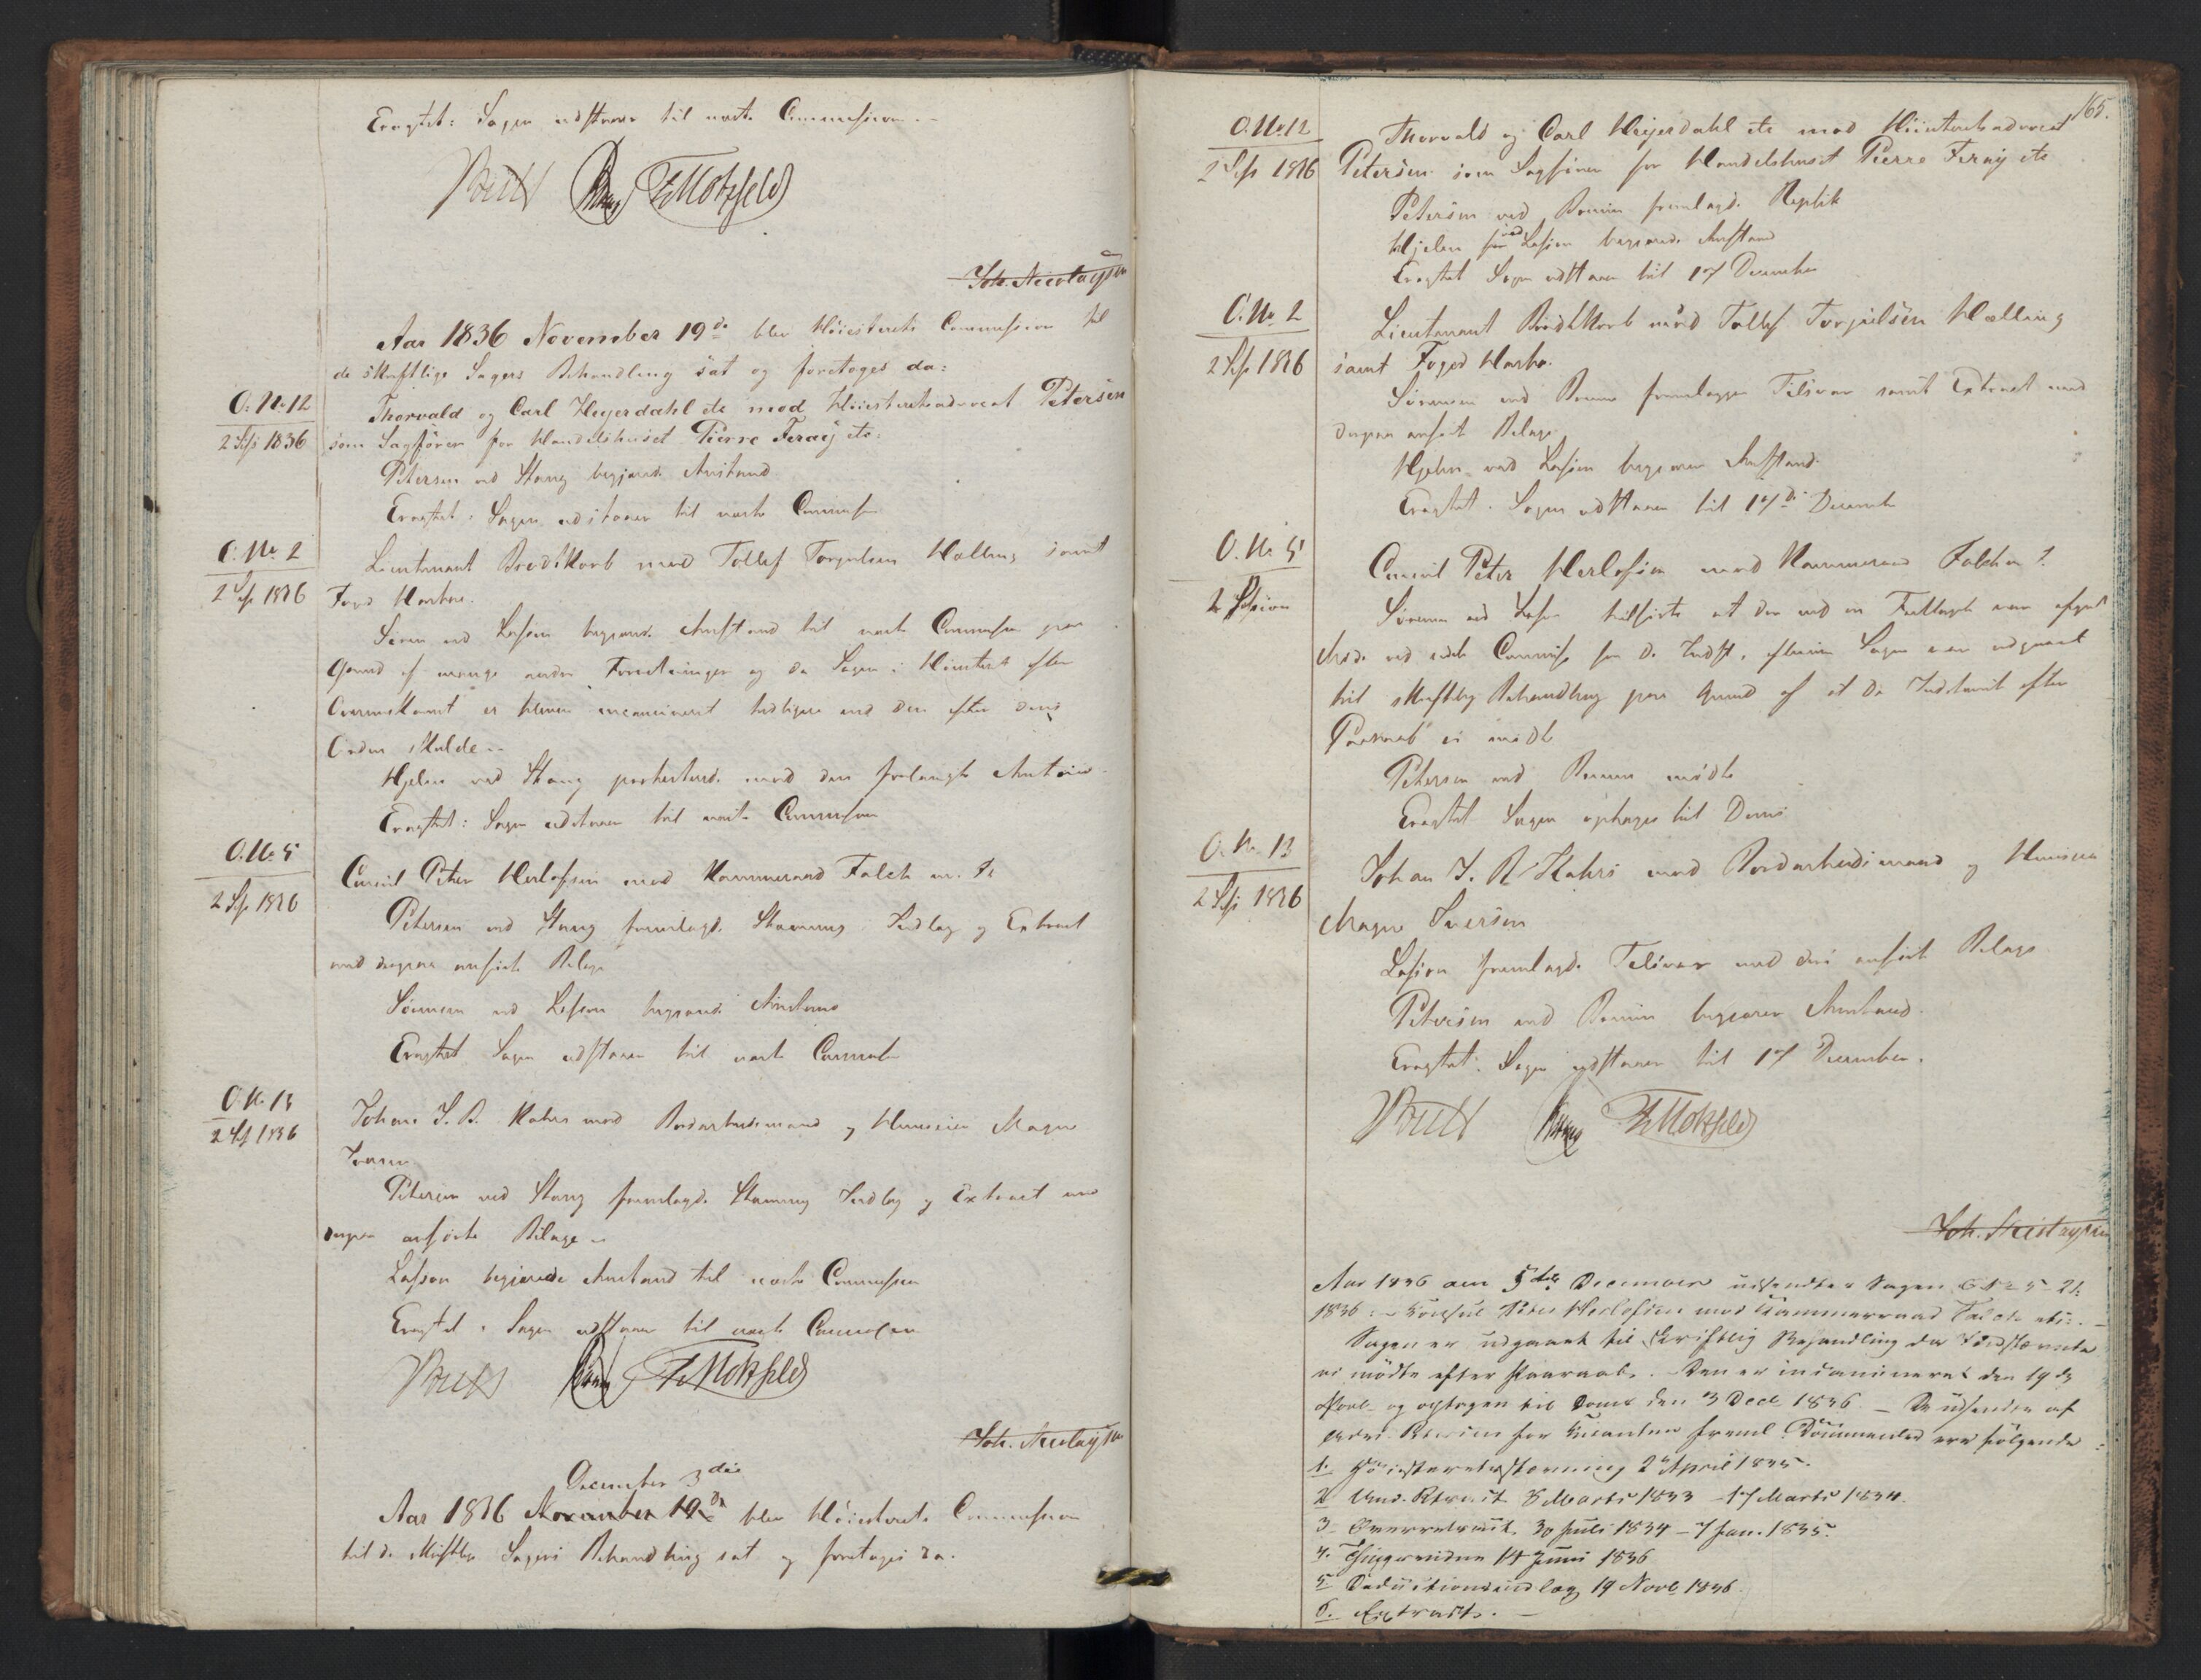 Eragtet: Sagen udstaaer til næste Commission.
Motzfeldt
Joh. Nicolaysen
Aar 1836 November 19de blev Höiesterets Commission til
de skriftlige Sagers Behandling sat og foretoges da:
O. No 12
2 Sess 1836
Thorvald og Carl Heyerdahl etc mod Höiesteretsadvocat Petersen
som Sagförer for Handelshuset Pierre Feray etc:
Petersen ved Stang begjærede Anstand
Eragtet: Sagen udstaaer til næste Commission
O. No. 2
2 Sess 1836
Lieutenant Brodtkorb mod Tollef Torjulsen Hælling samt
Foged Harbo.
ved Lasson begjærede Anstand til næste Commission paa
Grund af mange andre Forretninger og da Sagen i Höiesteret efter
er bleven incamineret tidligere end den efter dens
Orden skulde.
Hjelm ved Stang protesterede mod den forlangte Anstand.
Eragtet: Sagen udstaaer til næste Commission
O. No 5
2 Sess 1836
Consul Peter Herlofsen mod Kammerraad Falch m. fl.
Petersen ved Stang fremlagde Stævning Indlæg og Extract
med derpaa anförte Bilage
Sörensen ved Lasson begjærede Anstand
Eragtet Sagen udstaaer til næste Commission
O. No. 13
2 Sess 1836
Johan J. R. Kahrs mod Bordarbeidsmand og Huuseier Magne
Iversen
Petersen ved Stang fremlagde Stævning Indlæg og Extract med
derpaa anförte Bilage.
Lasson begjærede Anstand til næste Commission
Eragtet: Sagen udstaaer til næste Commission
Motzfeldt
Joh. Nicolaysen
December 3die
Aar 1836 November 19de blev Höiesterets Commission
til de skriftlige Sagers Behandling sat og foretoges da.
165.
O. No 12
2 Sess 1836
Thorvald og Carl Heyerdahl etc mod Höiesteretsadvocat
Petersen som Sagförer for Handelshuset Pierre Feray etc
Petersen ved Bruun fremlagde Replik
Hjelm for ved Lasson begjærede Anstand
Eragtet Sagen udstaaer til 17 December
O. No. 2
2 Sess 1836
Lieutenant Brodtkorb mod Tollef Torjulsen Hælling
samt Foged Harbo.
Sörensen ved Bruun fremlægger Tilsvar samt Extract med
derpaa anfört Bilage
Hjelm ved Lasson begjærer Anstand.
Eragtet. Sagen udstaaer til 17de December
O. No. 5
2 Session
Consul Peter Herlofsen mod Kammerraad Falch m. fl.
Sörensen ved Lasson tilförte at der ved en Feiltagelse var afgivet
Möde ved sidste Commission for de Indst., eftersom Sagen var udgaaet
til skriftlig Behandling paa Grund af at de Indstevnte efter
Paaraab ei mödte
Petersen ved Bruun mödte
Eragtet Sagen optages til Doms
O. No. 13
2 Sess 1836
Johan J. R Kahrs mod Bordarbeidsmand og Huuseier
Magne Iversen
Lasson fremlagde Tilsvar med deri anfört Bilage
Petersen ved Bruun begjærer Anstand.
Eragtet: Sagen udstaaer til 17 December.
Motzfeldt
Joh. Nicolaysen
Aar 1836 den 5te December udsendtes Sagen O No 5 2 S.
1836: Consul Peter Herlofsen mod Kammerraad Falch etc:
Sagen er udgaaet til skriftlig Behandling da Indstævnte
ei mödte efter Paaraab. Den er incamineret den 19de
Novb. og optagen til Doms den 3 Decb 1836. De udsendte af
Adv. Petersen for Citanten freml. Documenter ere fölgende:
1. Höiesteretsstævning 2 April 1835.
2 Und. Retsact 8 Marts 1833 – 17 Marts 1834.
3 Overretsact. 30 Juli 1834 – 7 Jan. 1835.
4. Thingsvidne 14 Juni 1836
5 Deductionsindlæg 19 Novb 1836.
6. Extract.